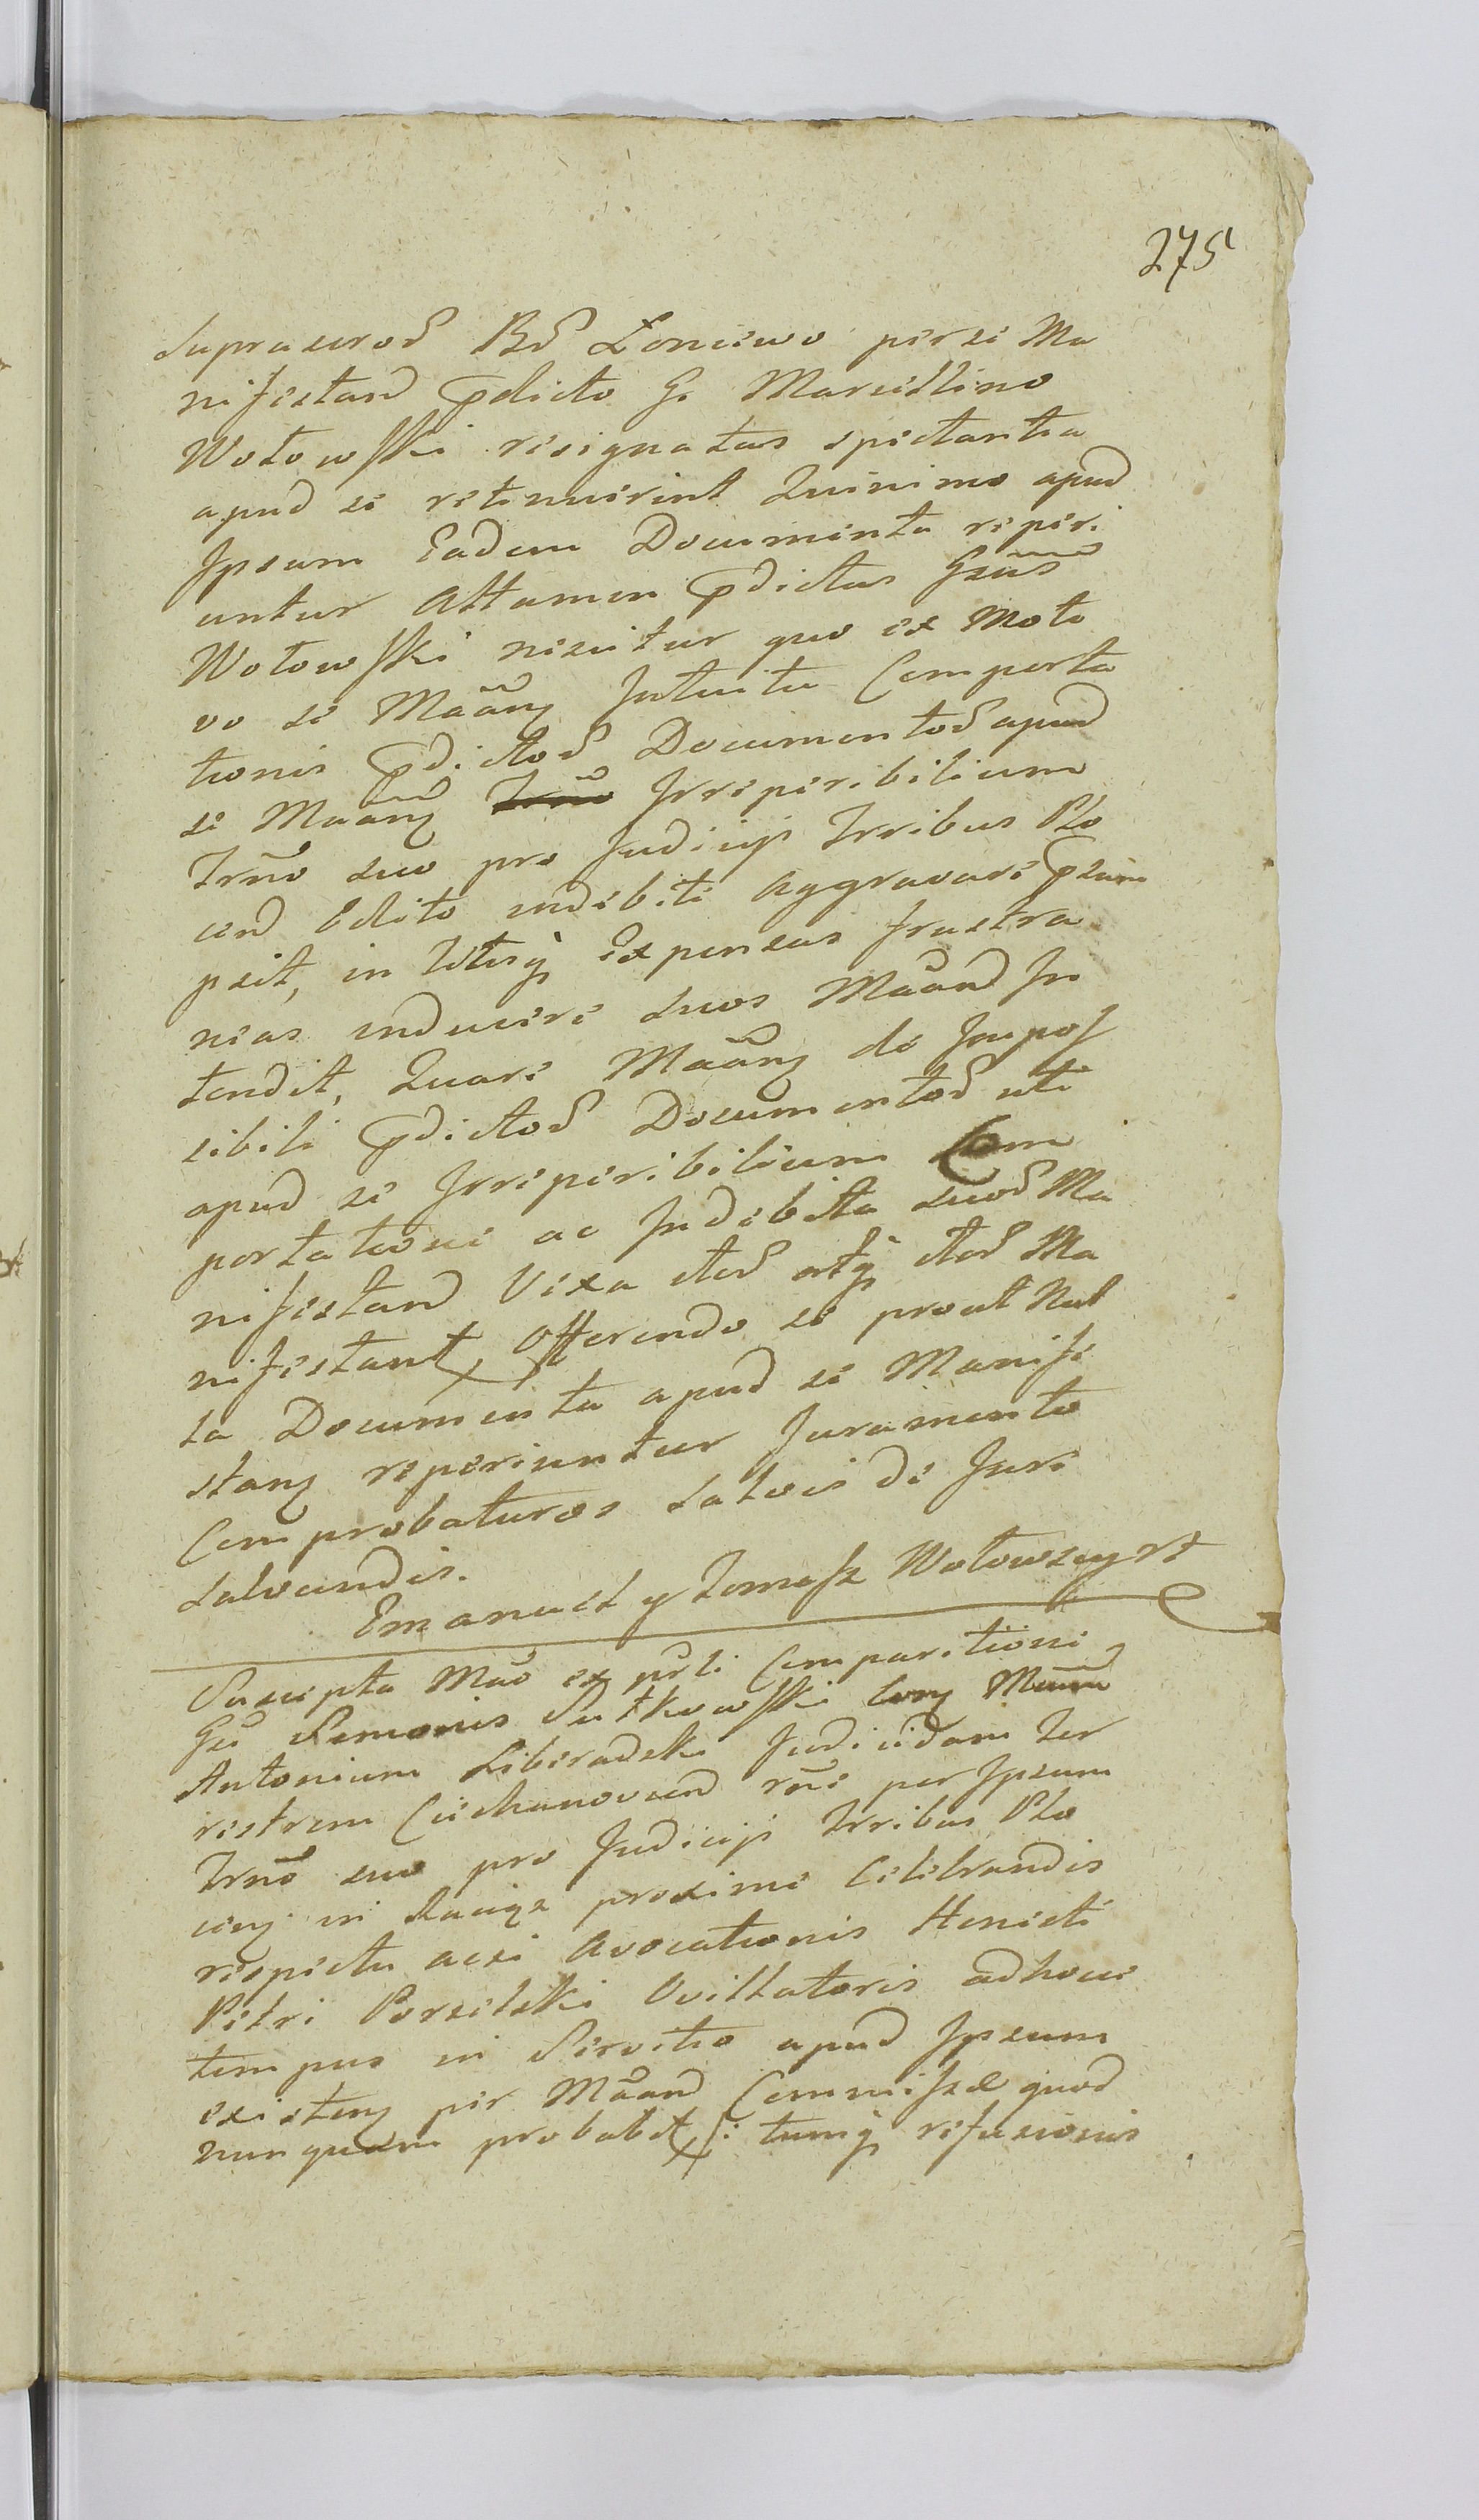 275
Suprascrod Bd Łoniewo per se Ma
nifestand pdicto G. Marcellino
Wołowski resignatas spectantia
apud se retinuerint Quinimo apud
Ipsum Eadem Documenta reperi
untur Attamen pdictus Gsus
Wołowski nescitur quo ex Moti
vo se Maang Intuitu Comporta
tionis pdictod Documentod apud
se Maang Irreperibilium
Trño suo pro Judicijs Trribus Plo
cen Edito indebite Aggravare psum
psit, in Tlesq Expensas frustra
neas inducere suos Maand In
tendit, Quare Maang de Impos
sibili pdictod Documentod uti
apud se Irreperibilium Com
portatione ac Indebita suod Ma
nifestand Vexa
nifestant, Offerendo se prout Nul
la Documenta apud se Manife
stang reperiuntur Juramento
Comprobaturos Salvis de Jure
Salvandis.
Emanuel y Tomasz Wołowscy
Suscepta Mao ex pñli Comparitione
Gsi Simonis Sutkowski Cong Mãum
Antonium Liberadzki Judicidam Ter
restrem Ciechanoviend rñe per Ipsum
Trño suo pro Judicijs Trribus Plo
ceng in Raciąz proxime Celebrandis
respectu acsi Avocationis Honesti
Petri Porzelski Ovillatoris adhouc
tempus in Servitio apud Ipsum
existeng per Maand Commissæ quod
nunquam probabit, tumq refusionis